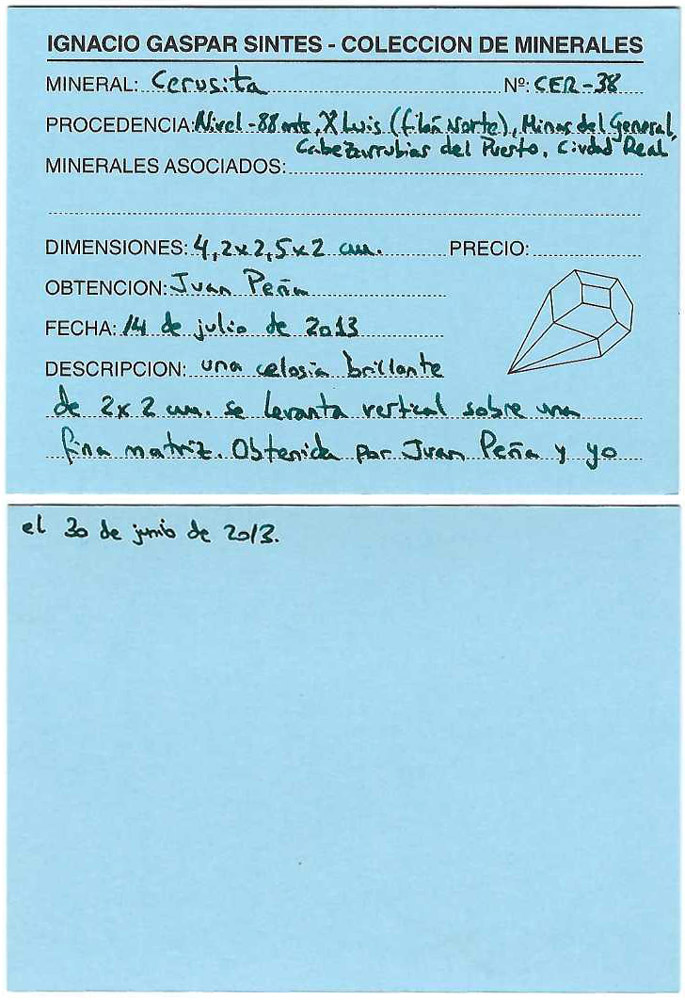 IGNACIO GASPAR SINTES - COLECCION DE MINERALES
MINERAL: Cerusita Nº: CER-38
PROCEDENCIA: Nivel -88 mts, Luis (filón Norte), Minas del General,
Cabezarrubias del Puerto. Ciudad Real
MINERALES ASOCIADOS:
DIMENSIONES: 4,2x2,5x2 cm. PRECIO:
OBTENCION: Juan Peña
FECHA: 14 de julio de 2013
DESCRIPCION: una celosia brillante
de 2x2 cm. se levanta vertical sobre una
fina matriz. Obtenida por Juan Peña y yo
el 30 de junio de 2013.